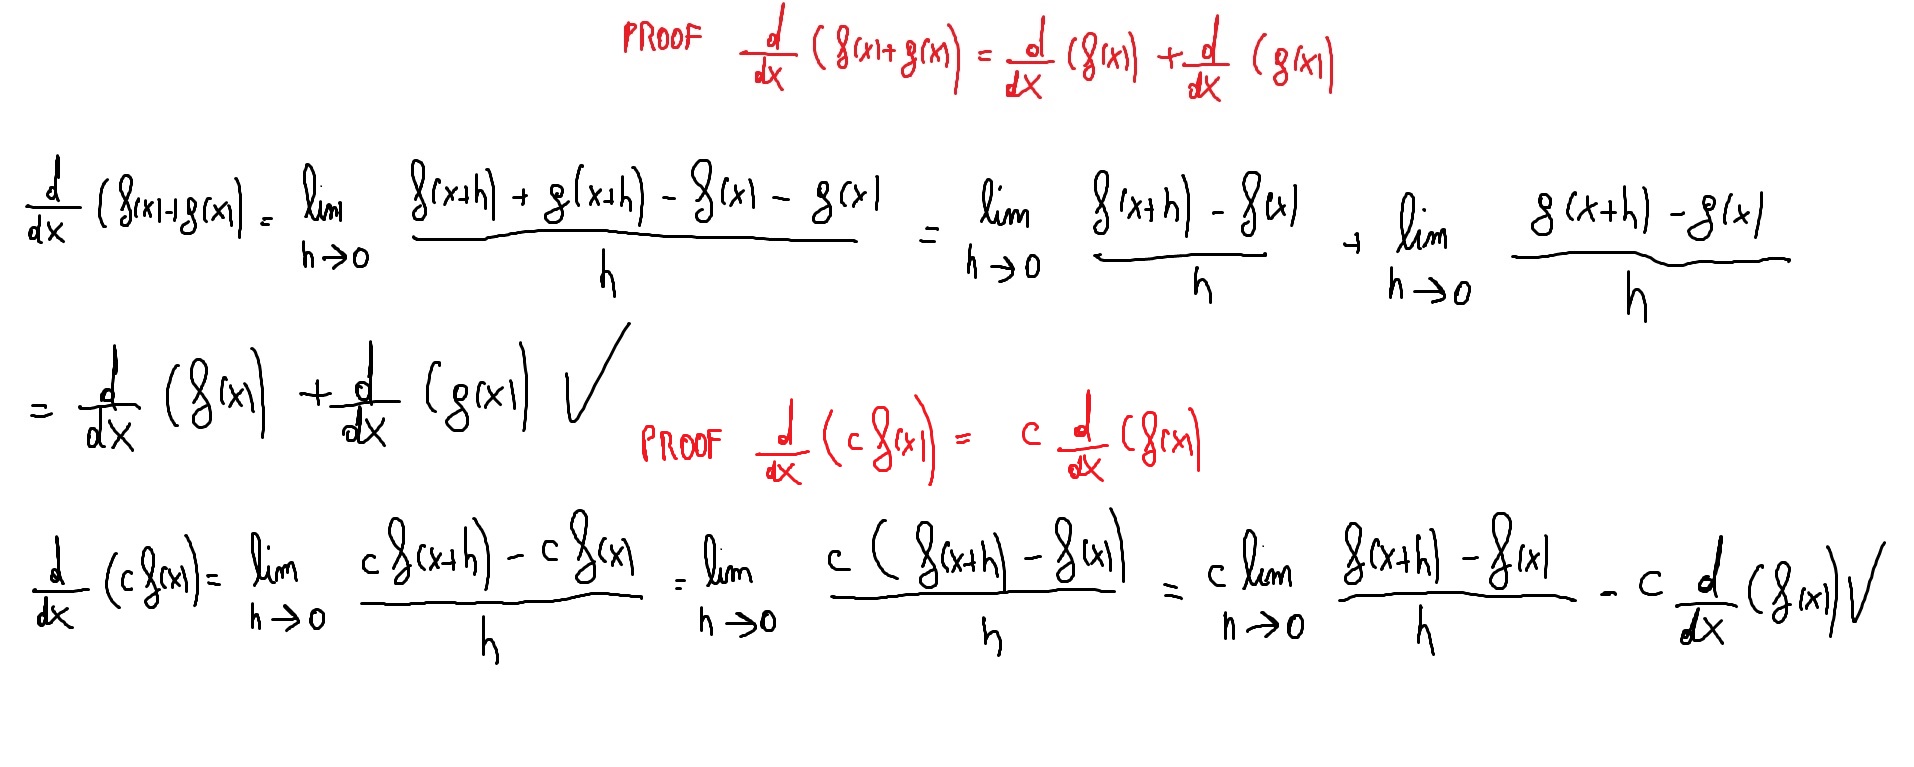 PROOF d/dx (f(x)+g(x)) = d/dx (f(x)) + d/dx (g(x))
d/dx (f(x)+g(x)) = lim h→0 f(x+h) + g(x+h) - f(x) - g(x) / h = lim h→0 f(x+h) - f(x) / h + lim h→0 g(x+h) - g(x) / h
= d/dx (f(x)) + d/dx (g(x)) ✓
PROOF d/dx (c f(x)) = c d/dx (f(x))
d/dx (c f(x)) = lim h→0 c f(x+h) - c f(x) / h = lim h→0 c ( f(x+h) - f(x)) / h = c lim h→0 f(x+h) - f(x) / h - c d/dx (f(x)) ✓